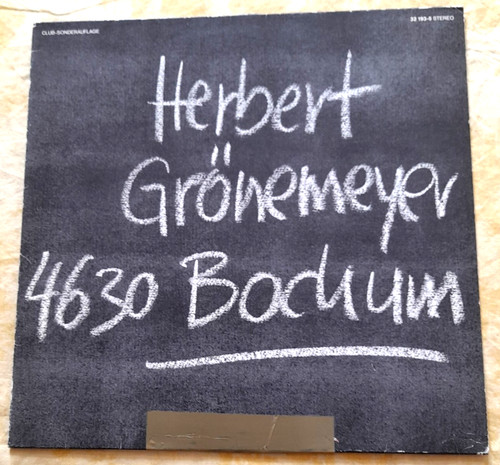 CLUB-SONDERAUFLAGE
33 193-5 STEREO
Herbert
Grönemeyer
4630 Bochum